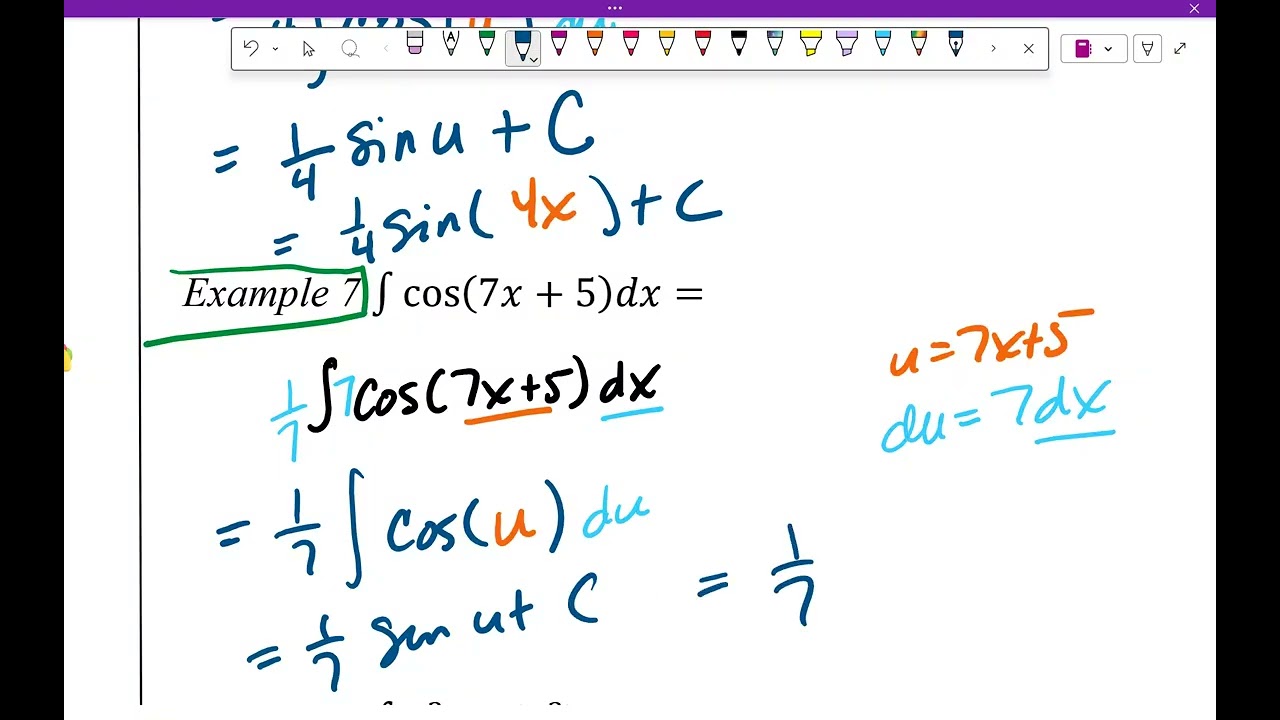 = 1/4 sin u + C
= 1/4 sin( 4x ) + C
Example 7 ∫ cos(7x + 5)dx =
1/7 ∫ 7 cos(7x+5) dx
u = 7x+5
du = 7dx
= 1/7 ∫ cos(u) du
= 1/7 sin u + C
= 1/7